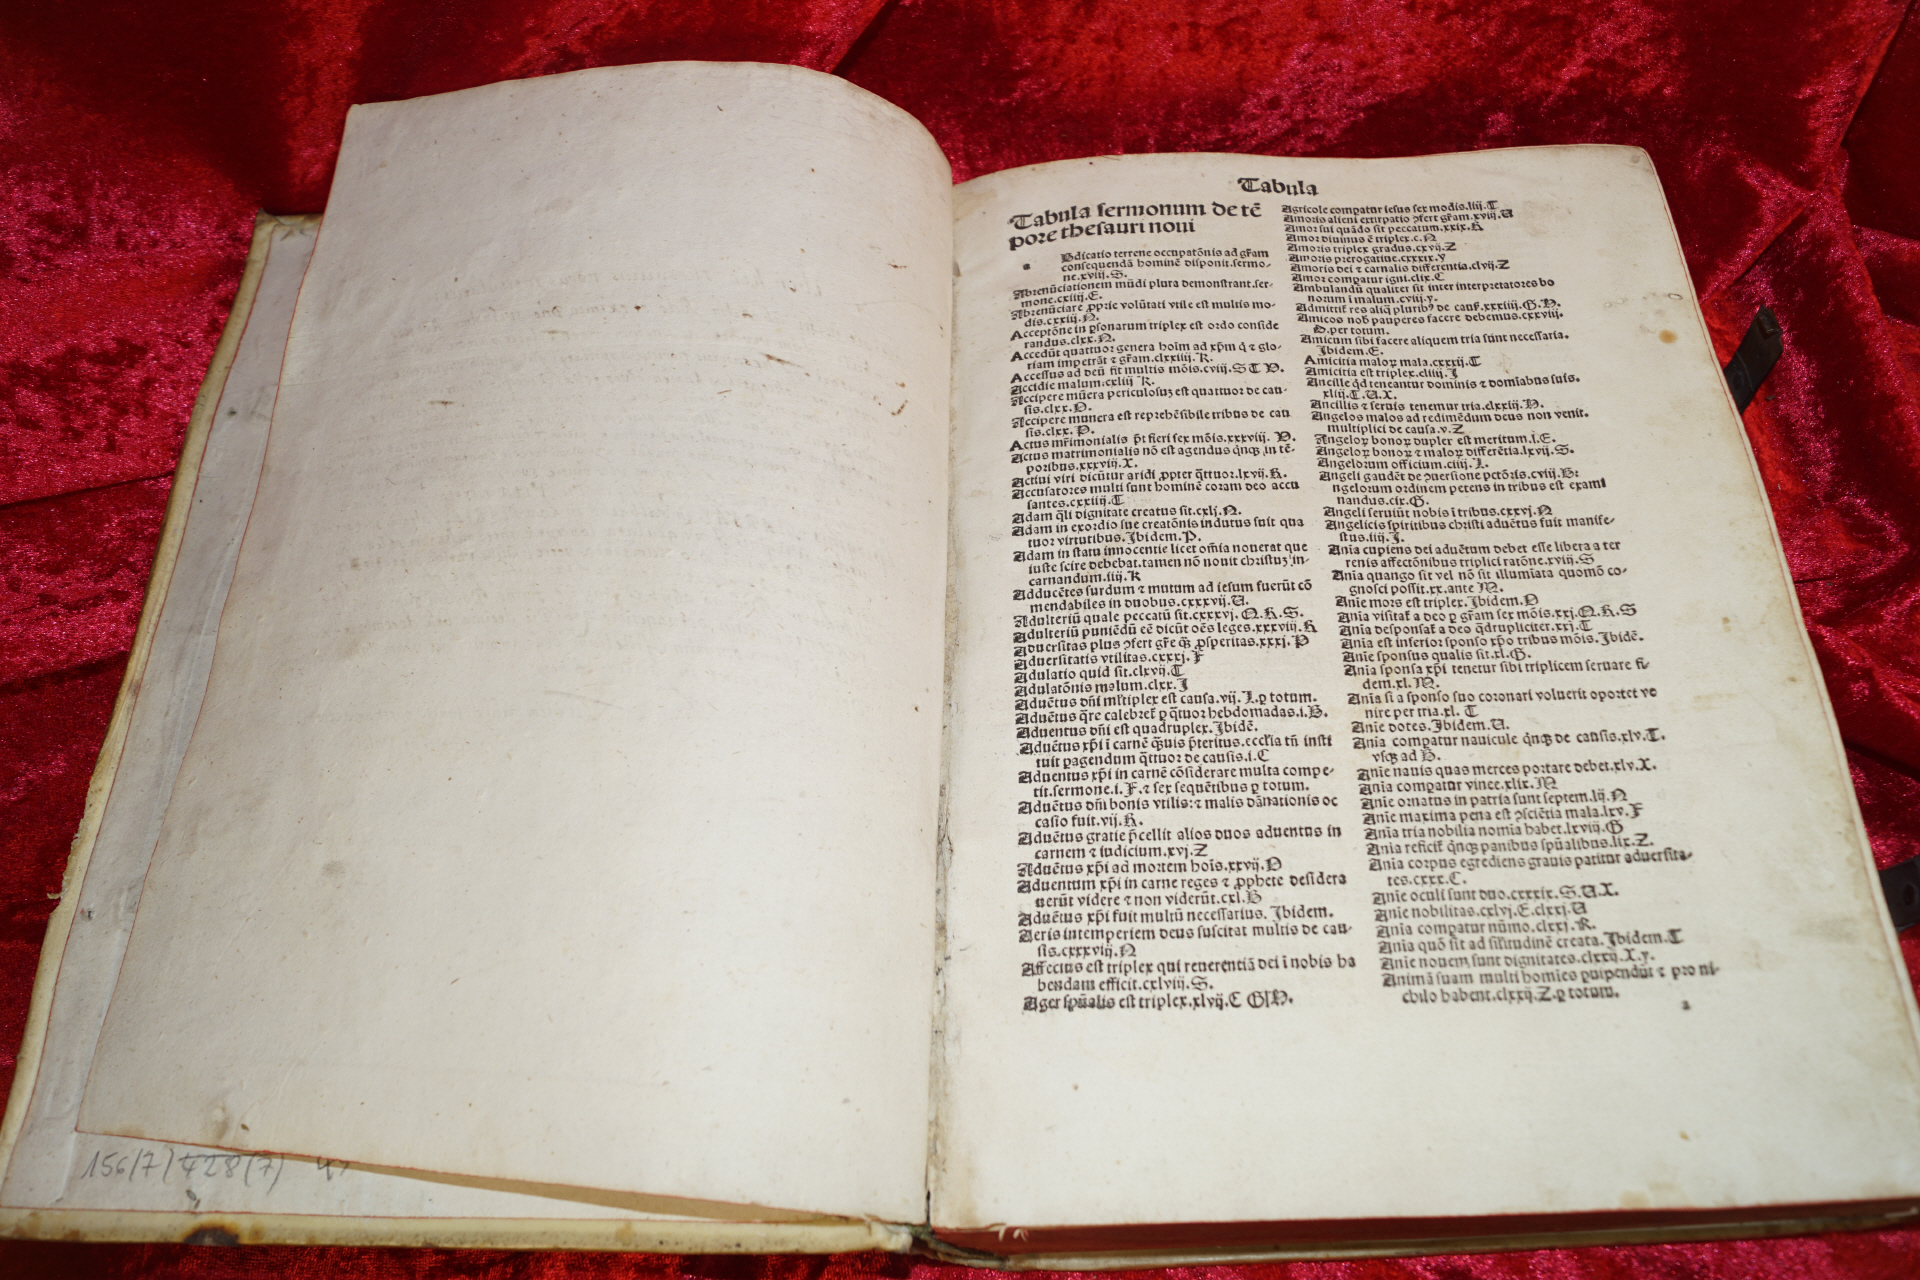 Tabula
Tabula sermonum de tē
pore thesauri noui
Bdicatio terrene occupatōnis ad gr̄am
consequendā hominē disponit.sermo-
ne.xviii.S.
Abrenūciationem mūdi plura demonstrant.ser-
mone.cxliij.E.
Abrenūciare ꝓprie volūtati vtile est multis mo-
dis.cxxiij.N.
Acceptōne in ꝑsonarum triplex est ordo conside
randus.clxx.N.
Accedūt quattuor genera hoīm ad xp̄m q̇ ⁊ glo-
riam impetrāt ⁊ gr̄am.clxxiiij.K.
Accessus ad deū fit multis mōis.cviij.S T V.
Accidie malum.cxliij K.
Accipere mūera periculosuꝫ est quattuor de cau-
sis.clxx.O.
Accipere munera est reprehēsibile tribus de cau
sis.clxx.P.
Actus mr̄imonialis p̄t fieri sex mōis.xxxviij. V.
Actus matrimonialis nō est agendus q̇nqꝫ in tē-
poribus.xxxviij.X.
Actiui viri dicūtur aridi ꝓpter q̄ttuor.lxvij.K.
Accusatores multi sunt hominē coram deo accu
santes.cxxiiij.T
Adam q̄li dignitate creatus sit.cxlj.N.
Adam in exordio sue creatōnis indutus fuit qua
tuor virtutibus.Ibidem.P.
Adam in statu innocentie licet oīmia nouerat que
iuste scire debebat.tamen nō nouit christuꝫ in-
carnandum.iiij.K
Adducētes surdum ⁊ mutum ad iesum fuerūt cō
mendabiles in duobus.cxxxvij.U.
Adulteriū quale peccatū sit.cxxxvj.Q.R.S.
Adulteriū puniēdū eē dicūt oēs leges.xxxviij.K
Aduersitas plus ↄfert gr̄e qꝫ ꝓsperitas.xxxj.P
Aduersitatis vtilitas.cxxxj.F
Adulatio quid sit.clxvij.T
Adulatōnis malum.clxx.I
Aduētus dn̄i ml̄tiplex est causa.vij.I.ꝑ totum.
Aduētus q̄re celebret̄ ꝑ q̄tuor hebdomadas.i.B.
Aduentus dn̄i est quadruplex.Ibidē.
Aduētus xp̄i ī carnē q̄uis p̄teritus.eccl̄ia tn̄ insti
tuit ꝑagendum q̄ttuor de causis.i.C
Aduentus xp̄i in carnē cōsiderare multa compe-
tit.sermone.i.F.⁊ sex sequētibus ꝑ totum.
Aduētus dn̄i bonis vtilis:⁊ malis dānationis oc
casio fuit.vij.K.
Aduētus gratie p̄cellit alios duos aduentus in
carnem ⁊ iudicium.xvj.Z
Aduētus xp̄i ad mortem hoīs.xxvij.O
Aduentum xp̄i in carne reges ⁊ ꝓphete desidera
uerūt videre ⁊ non viderūt.cxl.B
Aduētus xp̄i fuit multū necessarius. Ibidem.
Aeris intemperiem deus suscitat multis de cau-
sis.cxxxviij.N
Affectus est triplex qui reuerentiā dei ī nobis ha
bendam efficit.cxlviij.S.
Ager spūalis est triplex.xlvij.E G|H.
Agricole compatur iesus sex modis.liij.T
Amoris alieni extirpatio ↄfert gr̄am.xvij.U
Amor sui quādo sit peccatum.xxix.K
Amor diuinus ē triplex.c.N
Amoris triplex gradus.cxvij.Z
Amoris prerogatiue.cxxxix.y
Amoris dei ⁊ carnalis differentia.clvij.Z
Amor compatur igni.clix.C
Ambulandū qualiter sit inter interpretatores bo
norum ī malum.cviij.y.
Admittit̄ res aliq̄ pluribꝰ de cauſ.xxxiiij.G.H.
Amicos nob̄ pauperes facere debemus.cxxviij.
D.per totum.
Amicum sibi facere aliquem tria sunt necessaria.
Ibidem.E.
Amicitia maloꝝ mala.cxxxij.T
Amicitia est triplex.cliiij.I
Ancille q̇d teneantur dominis ⁊ domīabus suis.
xliij.T.U.X.
Ancillis ⁊ seruis tenemur tria.clxxiij.H.
Angelos malos ad redimēdum deus non venit.
multiplici de causa.v.Z
Angeloꝝ bonoꝝ duplex est meritum.l.E.
Angeloꝝ bonoꝝ ⁊ maloꝝ differētia.lxvij.S.
Angelorum officium.ciiij.I.
Angeli gaudēt de ↄuersione pctōris.cviij.B:
ngelorum ordinem petens in tribus est exami
nandus.cix.G.
Angeli seruiūt nobis ī tribus.cxxvj.N
Angelicis spiritibus christi aduētus fuit manife-
stus.iiij.I.
Anīa cupiens dei aduētum debet esse libera a ter
renis affectōnibus triplici ratōne.xviij.S
Anīa quango sit vel nō sit illumīata quomō co-
gnosci possit.xx.ante M.
Anīe mors est triplex.Ibidem.O
Anīa visitat̄ a deo ꝑ gr̄am sex mōis.xxj.Q.R.S
Anīa desponsat̄ a deo q̄drupliciter.xxj.T
Anīa est inferior sponso xp̄o tribus mōis.Ibidē.
Anīe sponsus qualis sit.xl.G.
Anīa sponsa xp̄i tenetur sibi triplicem seruare fi-
dem.xl.M.
Anīa si a sponso suo coronari voluerit oportet ve
nire per tria.xl. T
Anīe dotes.Ibidem.U.
Anīa compatur nauicule q̇nqꝫ de causis.xlv.T.
vsqꝫ ad B.
Anīe nauis quas merces portare debet.xlv.X.
Anīa compatur vinee.xlix.M
Anīe ornatus in patria sunt septem.lij.N
Anīe maxima pena est ↄsciētia mala.lxv.F
Anīa tria nobilia nomīa habet.lxviij.G
Anīa reficit̄ q̇nqꝫ panibus spūalibus.lix.Z.
Anīa corpus egrediens grauis patitur aduersita-
tes.cxxx.C.
Anīe oculi sunt duo.cxxxix.S.U.X.
Anīe nobilitas.cxlvj.E.clxxj.U
Anīa compatur nūmo.clxxj.R.
Anīa quō sit ad sil̄itudinē creata.Ibidem.T
Anīe nouem sunt dignitates.clxxij.X.y.
Animā suam multi homīes ꝑuipendūt ⁊ pro ni-
chilo habent.clxxij.Z.ꝑ totum.
a
156/7/428(7)